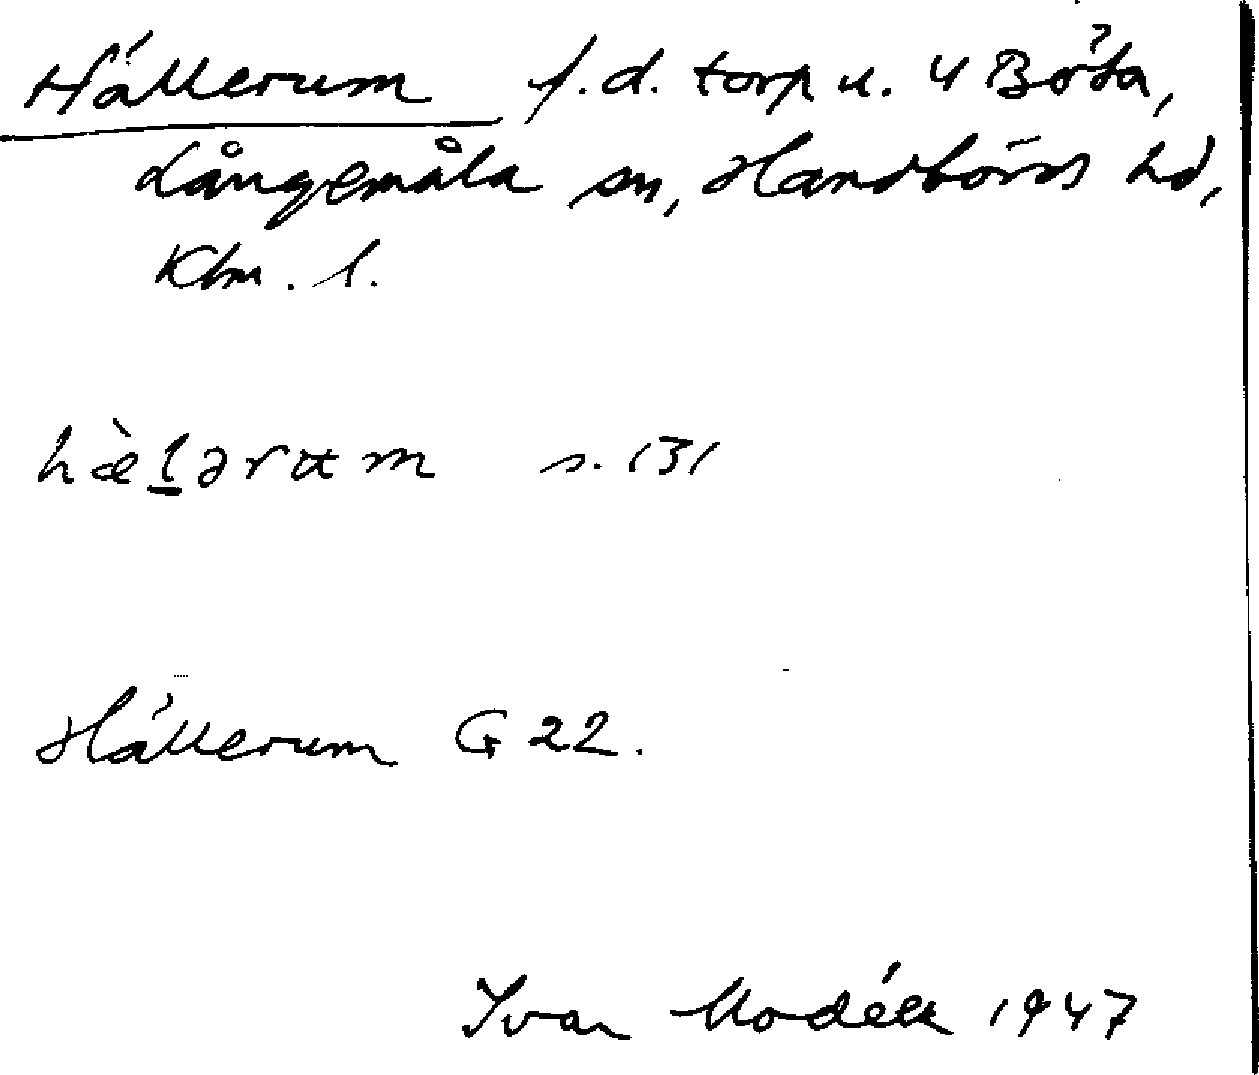 Hällerum f.d. torp u. 4 Böta,
Långemåla sn, Handbörds hd,
Klm. l.
hæ̀l̠ərum s. 131
Hällerum G 22.
Ivar Modéer 1947